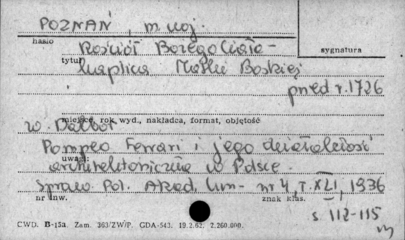 POZNAŃ, m. woj.
hasło
Kościół Bożego Ciała -
sygnatura
tytuł
kaplica Matki Boskiej
przed r. 1726
miejsce, rok wyd., nakładca, format, objętość
w Dalbor
Pompeo Ferrari i jego działalność
uwagi:
architektoniczna w Polsce.
Spraw. Pol. Akad. Um. nr 4, T. XLI, 1936
nr inw.
znak klas.
s. 112-115
CWD. B-15a. Zam. 263/ZW/P. GDA-543. 19.2.62. 7.260.000.